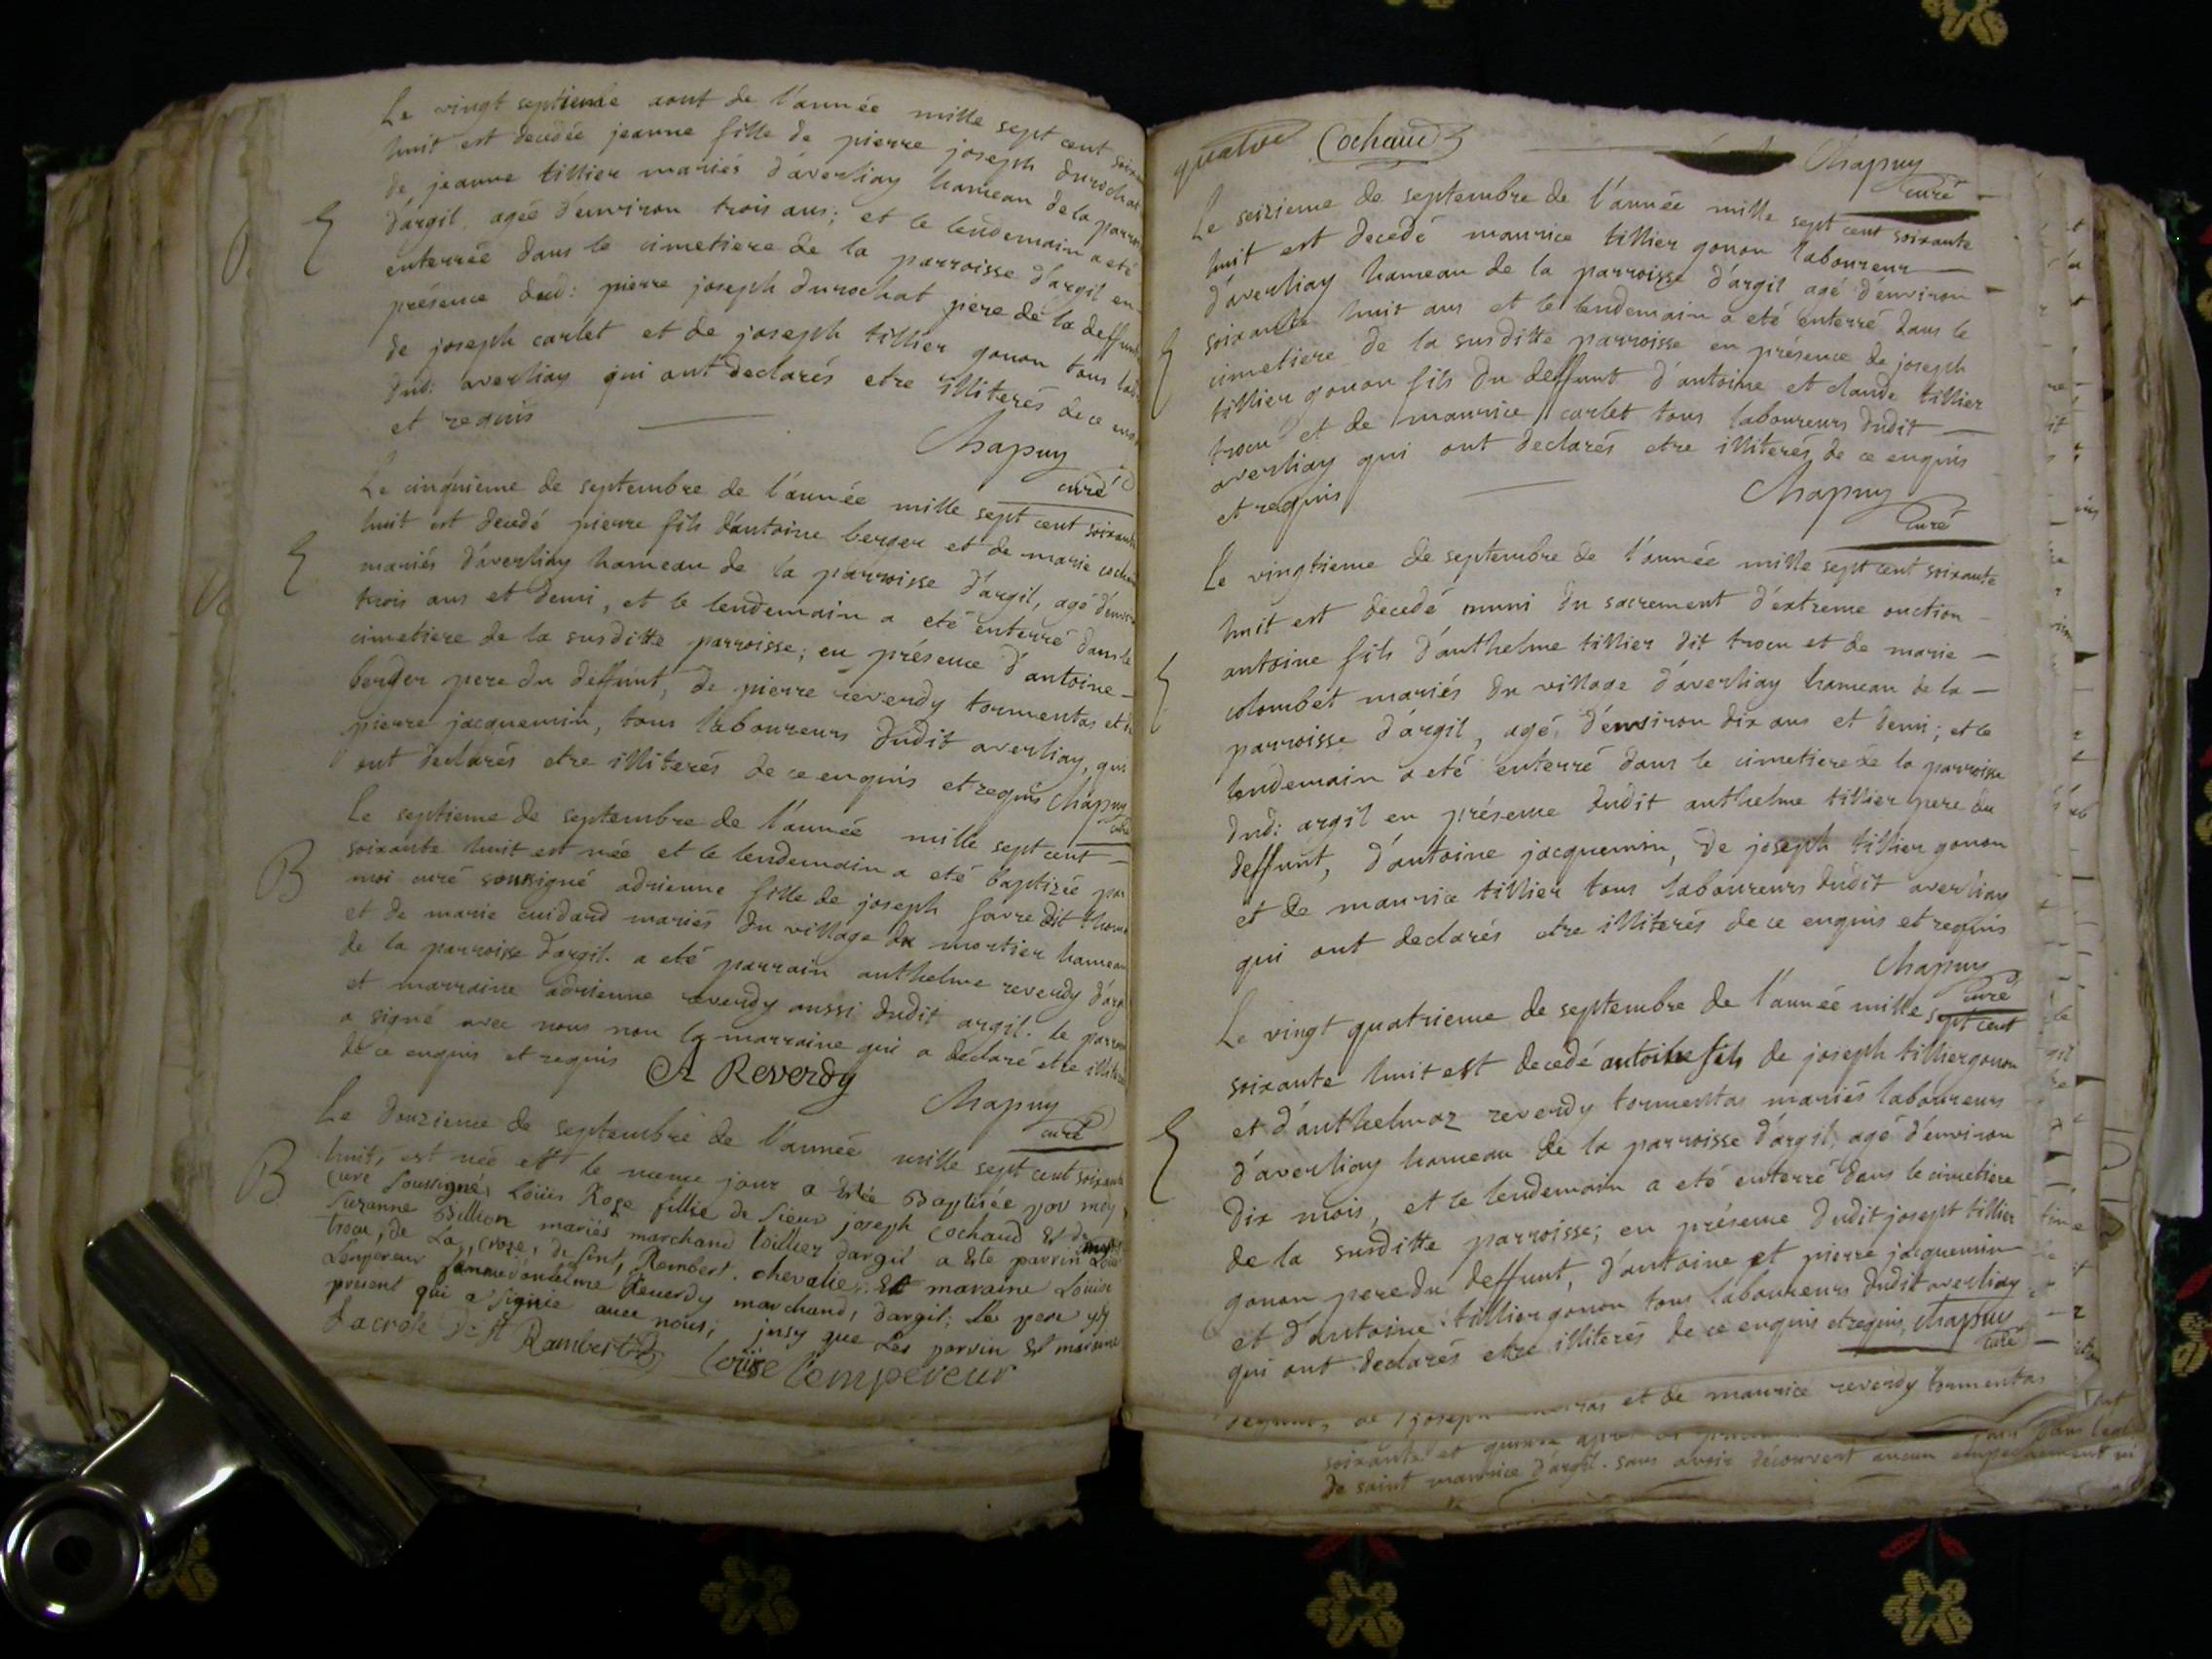 Le vingt septieme aout de l'année mille sept cent
huit est decedée jeanne fille de pierre joseph durochat
de jeanne tillier mariés d'averliay hameau de la
d'argil, agée d'environ trois ans; et le lendemain a eté
enterrée dans le cimetiere de la parroisse d'argil en
présence dud: pierre joseph durochat pere de la
de joseph carlet et de joseph tillier gonon tous
dud: averliay qui ont declarés etre illiterés de ce
et requis
Chapuy
curé
Le cinquieme de septembre de l'année mille sept cent soixante
huit est decedé pierre fils d'antoine berger et de marie
mariés d'averliay hameau de la parroisse d'argil, agé
trois ans et demi, et le lendemain a eté enterré dans le
cimetiere de la susditte parroisse; en présence d'antoine
berger pere du deffunt, de pierre reverdy tormentas et
pierre jacquemin, tous laboureurs dudit averliay, qui
ont declarés etre illiterés de ce enquis et requis Chapuy
curé
Le septieme de septembre de l'année mille sept cent
B soixante huit est née et le lendemain a eté baptizée par
moi curé soussigné adrienne fille de joseph favre dit
et de marie cuidard mariés du village du mortier hameau
de la parroisse d'argil. a eté parrain anthelme reverdy
et marraine adrienne reverdy aussi dudit argil. le
a signé avec nous non la marraine qui a declaré etre
de ce enquis et requis A Reverdy
Chapuy
curé
Le douzieme de septembre de l'année mille sept cent soixante
B huit, est née et le meme jour a Estée Baptisée par moy
Curé Soussigné, Loüis Rose fillie de sieur joseph Cochaud Et de
Suzanne Bullion mariés marchand
de La, croze, de sint, Rembert. chevalier. Et maraine Louise
Lempereur femme d'antelme Reverdy marchand, dargil; Le pere
present qui a signie avec nous; insy que Les parrin Et maraine
Lacrose De st Rambert Loüise lempereur
quatre Cochaud
Chapuy
curé
Le seizieme de septembre de l'année mille sept cent soixante
huit est decedé maurice tillier gonon laboureur
d'averliay hameau de la parroisse d'argil agé d'environ
soixante huit ans et le lendemain a eté enterré dans le
cimetiere de la susditte parroisse en présence de joseph
tillier gonon fils du deffunt d'antoine et claude tillier
trocu et de maurice carlet tous laboureurs dudit
averliay qui ont declarés etre illiterés de ce enquis
et requis
Chapuy
curé
Le vingtieme de septembre de l'année mille sept cent soixante
huit est decedé muni du sacrement d'extreme onction
antoine fils d'anthelme tillier dit trocu et de marie
colombet mariés du village d'averliay hameau de la
parroisse d'argil, agé d'environ dix ans et demi; et le
lendemain a eté enterré dans le cimetiere de la parroisse
dud: argil en présence dudit anthelme tillier pere du
deffunt, d'antoine jacquemin, de joseph tillier gonon
et de maurice tillier tous laboureurs dudit averliay
qui ont declarés etre illiterés de ce enquis et requis
Chapuy
curé
Le vingt quatrieme de septembre de l'année mille sept cent
soixante huit est decedé antoine fils de joseph tillier gonon
et d'anthelmaz reverdy tormentas mariés laboureurs
d'averliay hameau de la parroisse d'argil, agé d'environ
dix mois, et le lendemain a eté enterré dans le cimetiere
de la susditte parroisse; en présence dudit joseph tillier
gonon pere du deffunt, d'antoine et pierre jacquemin
et d'antoine tillier gonon tous laboureurs dudit averliay
qui ont declarés etre illiterés de ce enquis et requis Chapuy
curé
et de maurice reverdy tormentas
soixante et
de saint maurice d'argil. sans avoir découvert aucun empechement